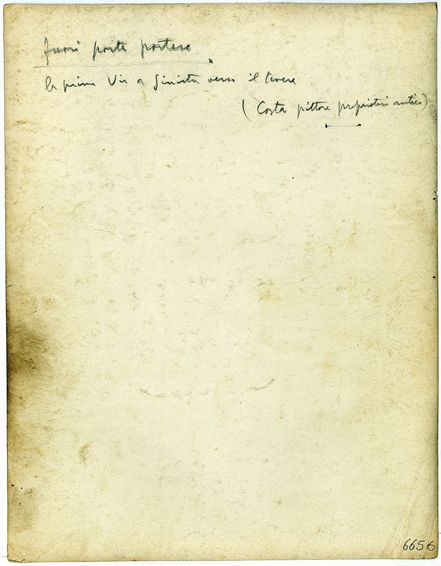 fuori porta portese
la prima Via a Sinistra verso il tevere
(Costa pittore proprietari antico)
6656